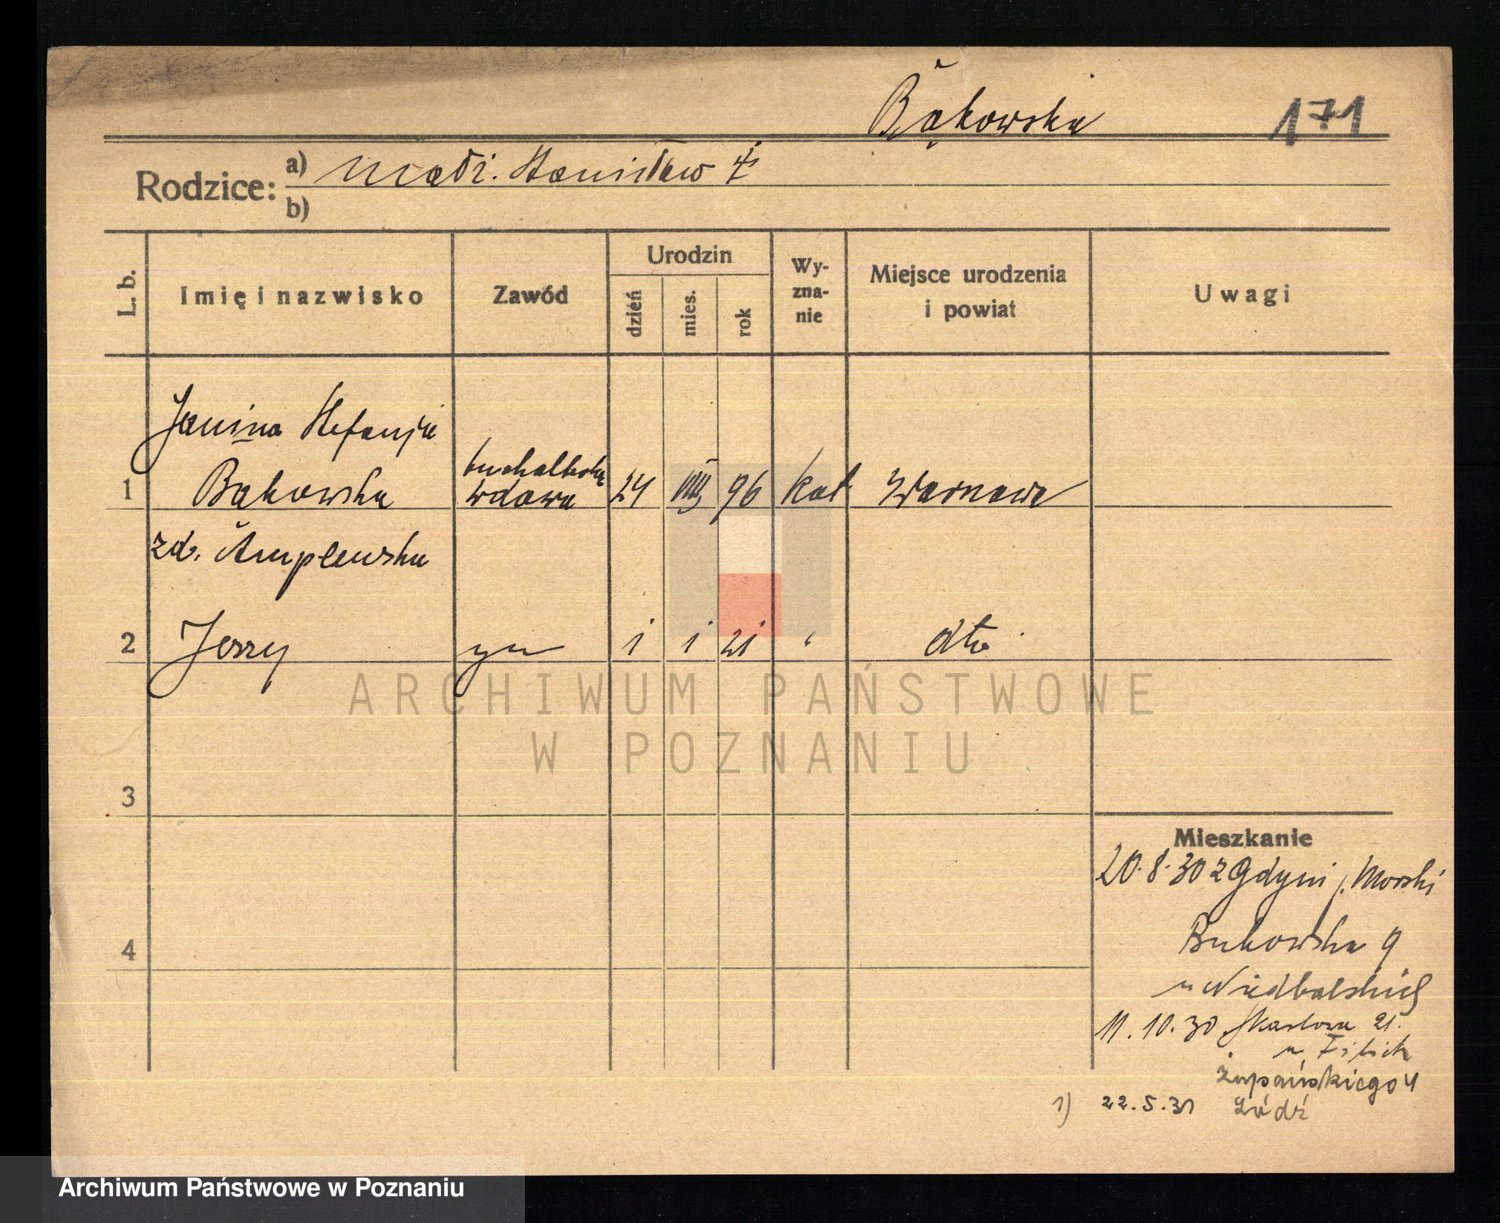 Bąkowska 171
Rodzice: a) małż. Stanisław ‡
b)
L. b. Imię i nazwisko Zawód Urodzin dzień mies. rok Wyznanie Miejsce urodzenia i powiat Uwagi
Janina Stefanja
buchalterka
1 Bąkowska wdowa 24 VIII 96 kat. Warszawa
zd.
2 Jerzy syn 1 1 21 " dto.
3
4
Mieszkanie
20.8.30 z Gdyni p. Morski
Bukowska 9
u Niedbalskich
11.10.30 21.
u
Żupańskiego 4
1) 22.5.31 Łódź
ARCHIWUM PAŃSTWOWE
W POZNANIU
Archiwum Państwowe w Poznaniu